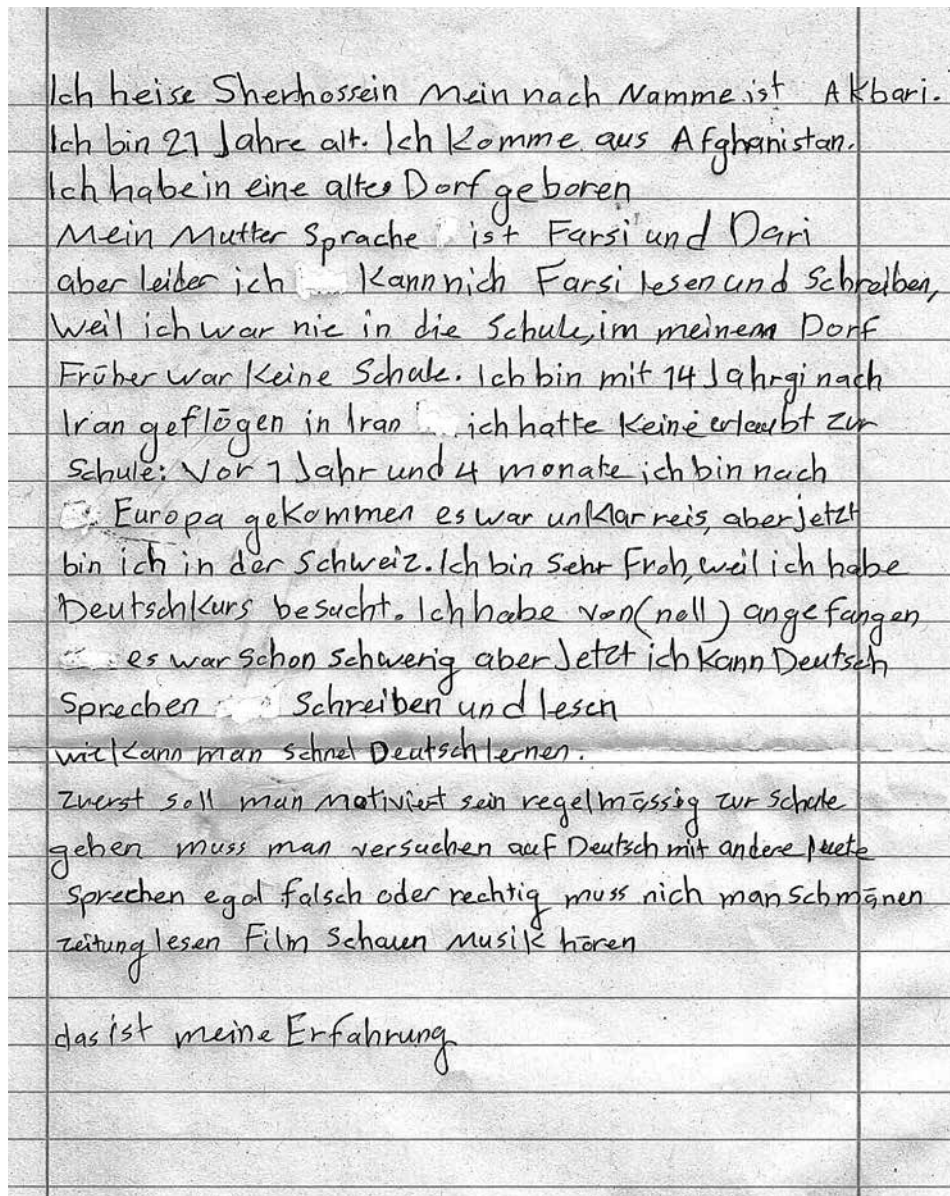 Ich heise Sherhossein Mein nach Namme ist Akbari.
Ich bin 21 Jahre alt. Ich komme aus Afghanistan.
Ich habe in eine altes Dorf geboren
Mein Mutter Sprache ist Farsi und Dari
aber leider ich kann nich Farsi lesen und Schreiben,
weil ich war nie in die Schule, im meinem Dorf
Früher war keine Schule. Ich bin mit 14 Jahrgi nach
Iran geflögen in Iran ich hatte keine erlaubt zur
Schule: Vor 1 Jahr und 4 monate ich bin nach
Europa gekommen es war unklar reis, aber jetzt
bin ich in der Schweiz. Ich bin Sehr Froh, weil ich habe
Deutschkurs besucht. Ich habe von (noll) angefangen
es war schon schwerig aber Jetzt ich kann Deutsch
Sprechen Schreiben und lesen
wie kann man schnel Deutsch lernen.
zuerst soll man motiviert sein regelmässig zur Schule
gehen muss man versuchen auf Deutsch mit andere leute
sprechen egal falsch oder rechtig muss nich man schmänen
zeitung lesen Film Schauen Musik hören
das ist meine Erfahrung